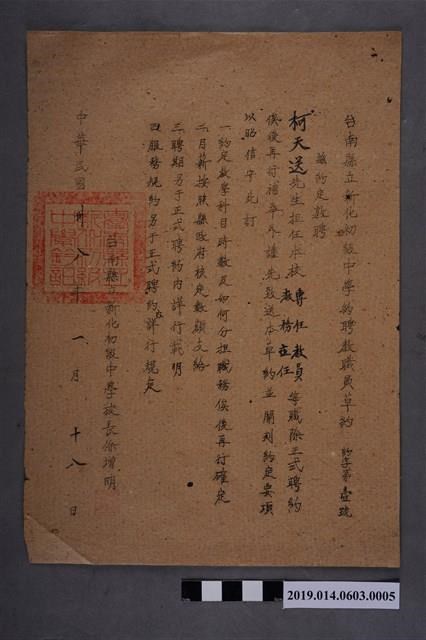 台南縣立新化初級中學約聘教職員草約 約字第壹號
茲約定敦聘
柯天送先生担任本校專任教員教務主任等職除正式聘約
俟後再行補奉外謹先致送本草約並開列約定要項
以昭信守此訂
一約定教學科目時數及如何分担職務俟後再行確定
二月薪按照縣政府核定數額支給
三聘期另于正式聘約內詳行載明
四服務規約另于正式聘約詳行規定
台南縣立新化初級中學校長徐增明
中華民國卅八年一月十八日
2019.014.0603.0005